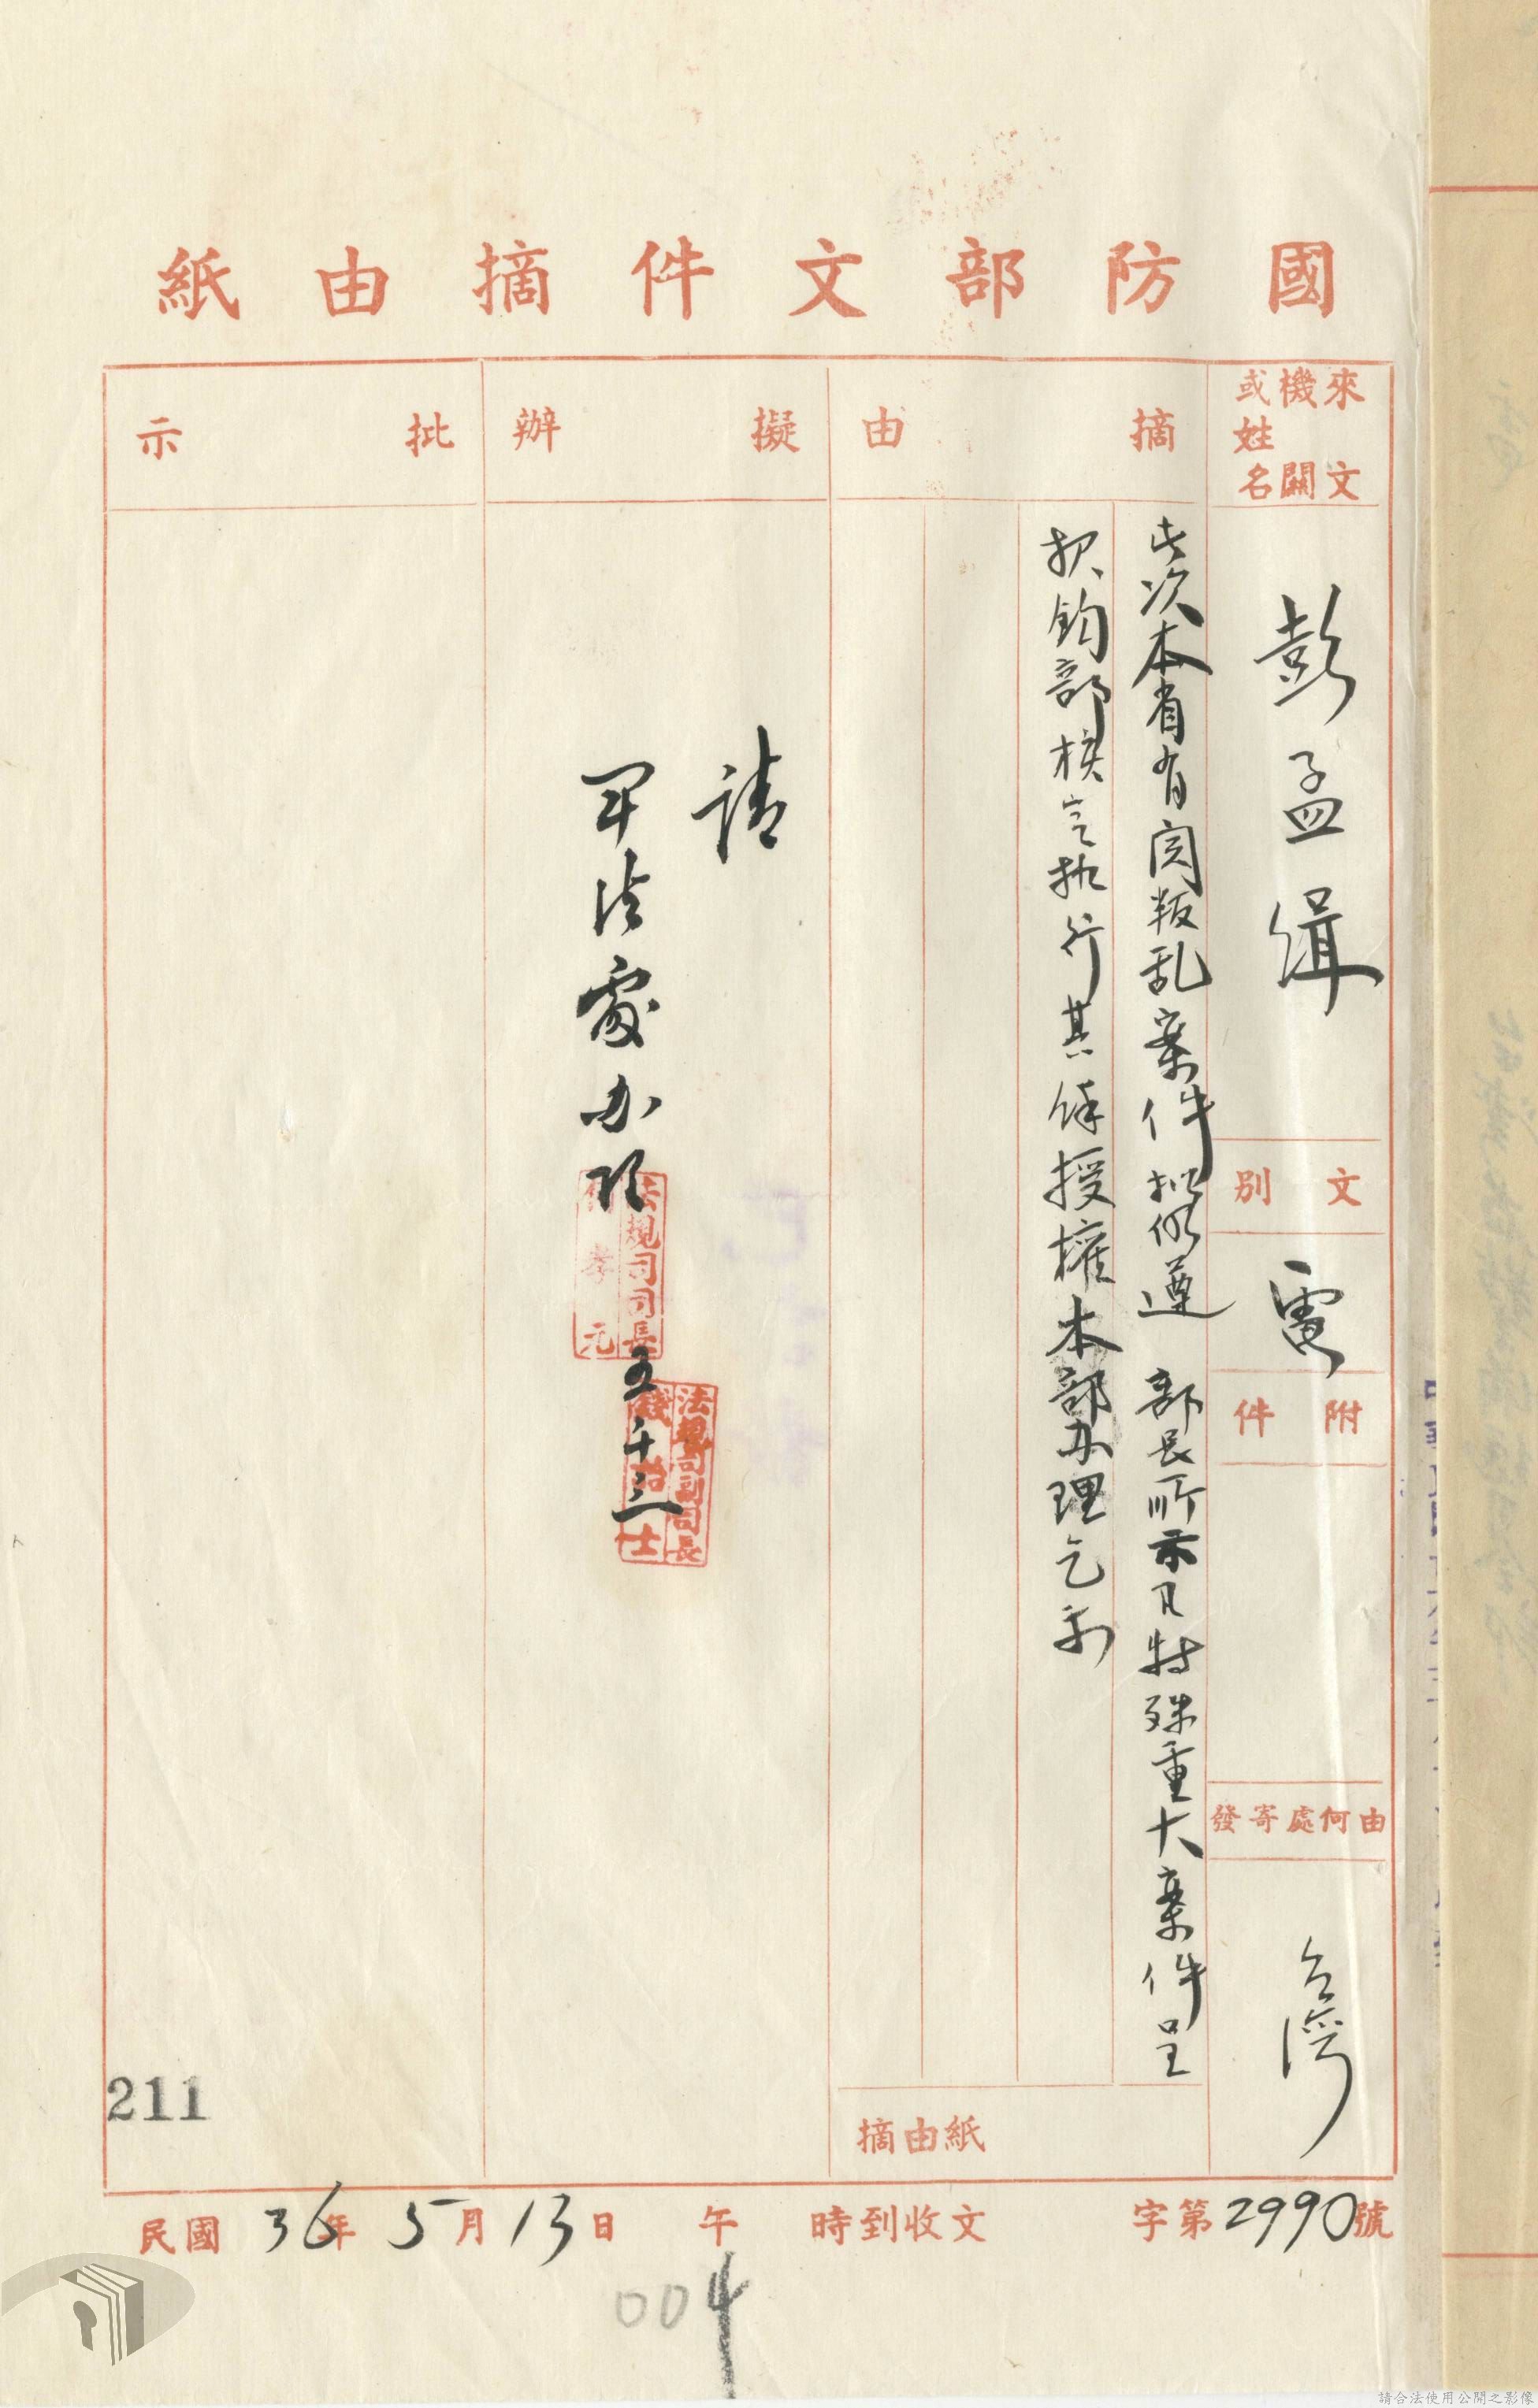 國防部文件摘由紙
來文機關或姓名
彭孟緝
文別
電
附件
由何處寄發
台灣
摘由
此次本省有関叛乱案件擬仍遵 部長所示凡特殊重大案件呈
報鈞部核定執行其餘授權本部办理乞示
摘由紙
擬辦
請
軍法處办理
法規司司長
孝元
五十三
法規司副司長
批示
211
字第2990號
民國36年5月13日 午 時到收文
004
請合法使用公開之影像